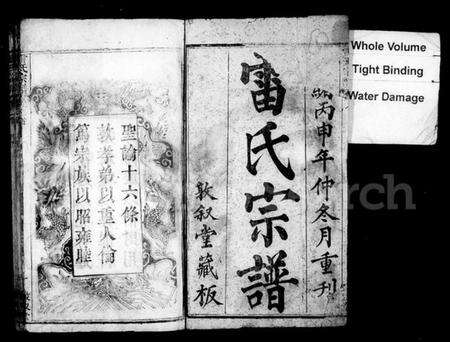 Whole Volume
Tight Binding
Water Damage
丙申年仲冬月重刊
雷氏宗譜
敦叙堂藏板
聖諭十六條
敦孝弟以重人倫
篤宗族以昭雍睦